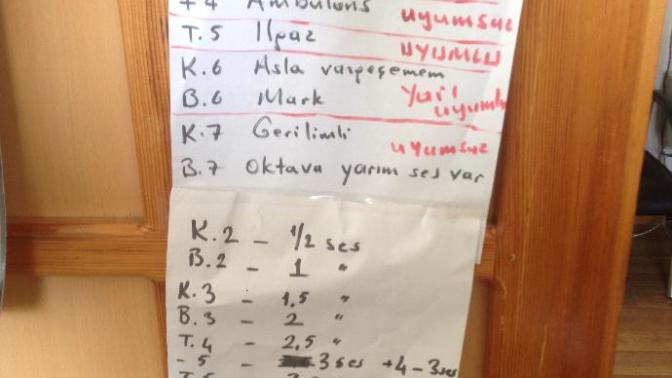 +4 Ambulans uyumsuz
T.5 Ilgaz uyumlu
K.6 Asla vazgeçemem
B.6 Mark Yarı uyumlu
K.7 Gerilimli uyumsuz
B.7 Oktava yarım ses var
K.2 – 1/2 ses
B.2 – 1 "
K.3 – 1,5 "
B.3 – 2 "
T.4 – 2,5 "
- 5 – 3 ses +4 – 3 ses